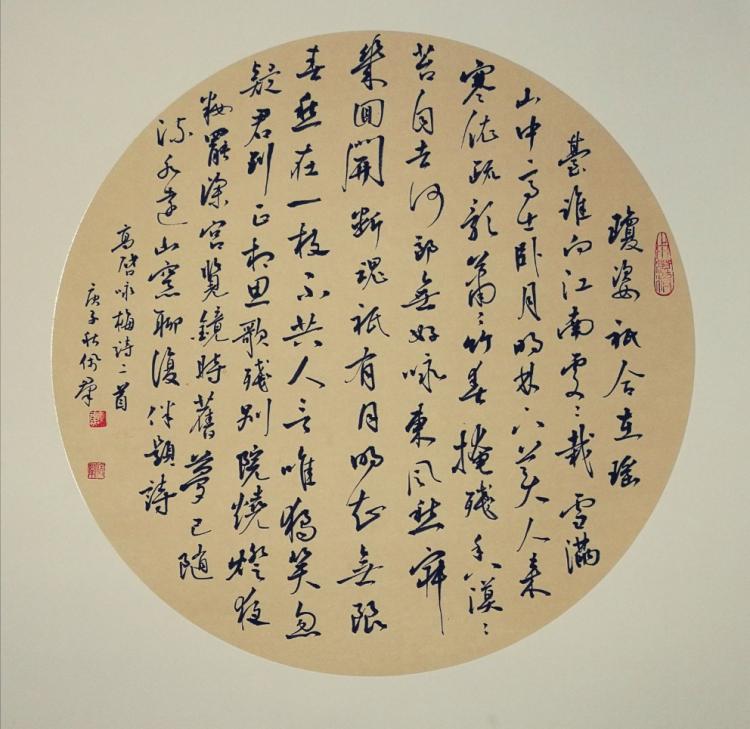 瓊姿祇合在瑤
臺誰向江南處々栽雪滿
山中高士臥月明林下美人來
寒依疏影蕭々竹春掩殘香漠々
苔自去何郎無好咏東風愁寂
幾回開斷魂祇有月明知無限
春愁在一枝不共人言唯獨笑忽
疑君到正相思歌殘別院燒燈夜
妝罷深宮覽鏡時舊夢已隨
流水遠山窗聊復伴題詩
高啓咏梅詩二首
庚子秋